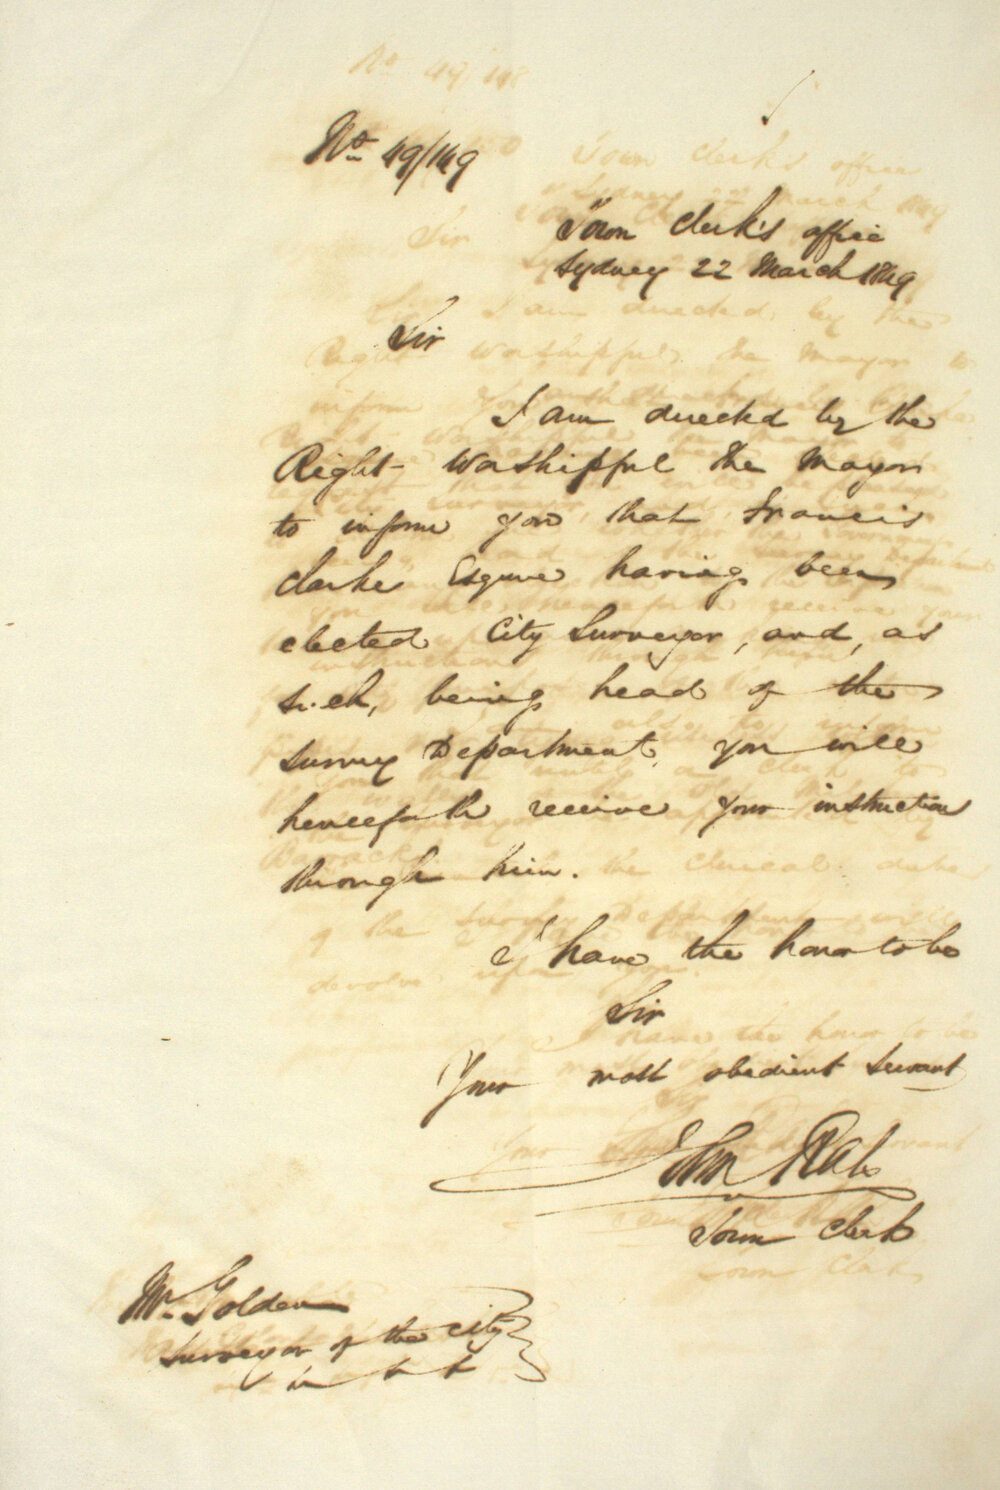 No 49/149
Town Clerk's office
Sydney 22 March 1849
Sir
I am directed by the
Right Worshipful the Mayor
to inform you that Francis
Clarke Esquire having been
elected City Surveyor, and, as
such, being head of the
Survey Department, you will
henceforth receive your instruction
through him.
I have the honor to be
Sir
Your most obedient servant
John Rae
Town Clerk
Mr Golden
Surveyor of the City